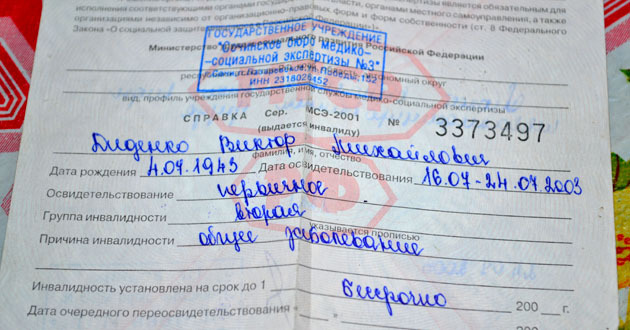 исполнения соответствующими органами государственной власти, органами местного самоуправления, а также
организациями независимо от организационно-правовых форм и форм собственности (ст. 8 Федерального
Закона «О социальной защите
ГОСУДАРСТВЕННОЕ УЧРЕЖДЕНИЕ
"Сочинское бюро медико-
-социальной экспертизы №3"
ИНН 2318026452
Министерство Российской Федерации
автономный округ
вид, профиль учреждения государственной службы медико-социальной экспертизы
СПРАВКА Сер. МСЭ-2001 № 3373497
(выдается инвалиду)
Диденко Виктор Михайлович
фамилия, имя, отчество
Дата рождения 4.07.1943 Дата освидетельствования 16.07-24.07 2003
Освидетельствование первичное
Группа инвалидности вторая
указывается прописью
Причина инвалидности общее заболевание
Инвалидность установлена на срок до 1 бессрочно 200 г.
Дата очередного переосвидетельствования « » 200 г.